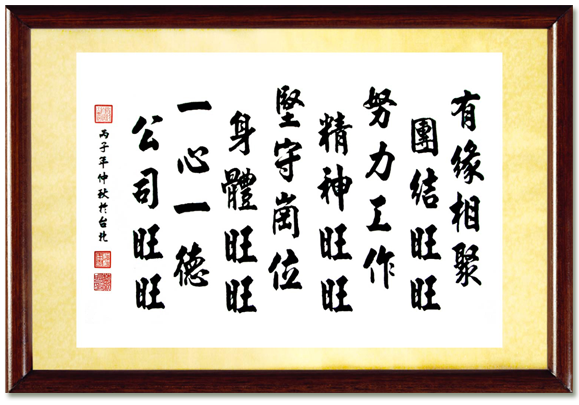 有緣相聚
團結旺旺
努力工作
精神旺旺
堅守崗位
身體旺旺
一心一德
公司旺旺
丙子年仲秋於台北